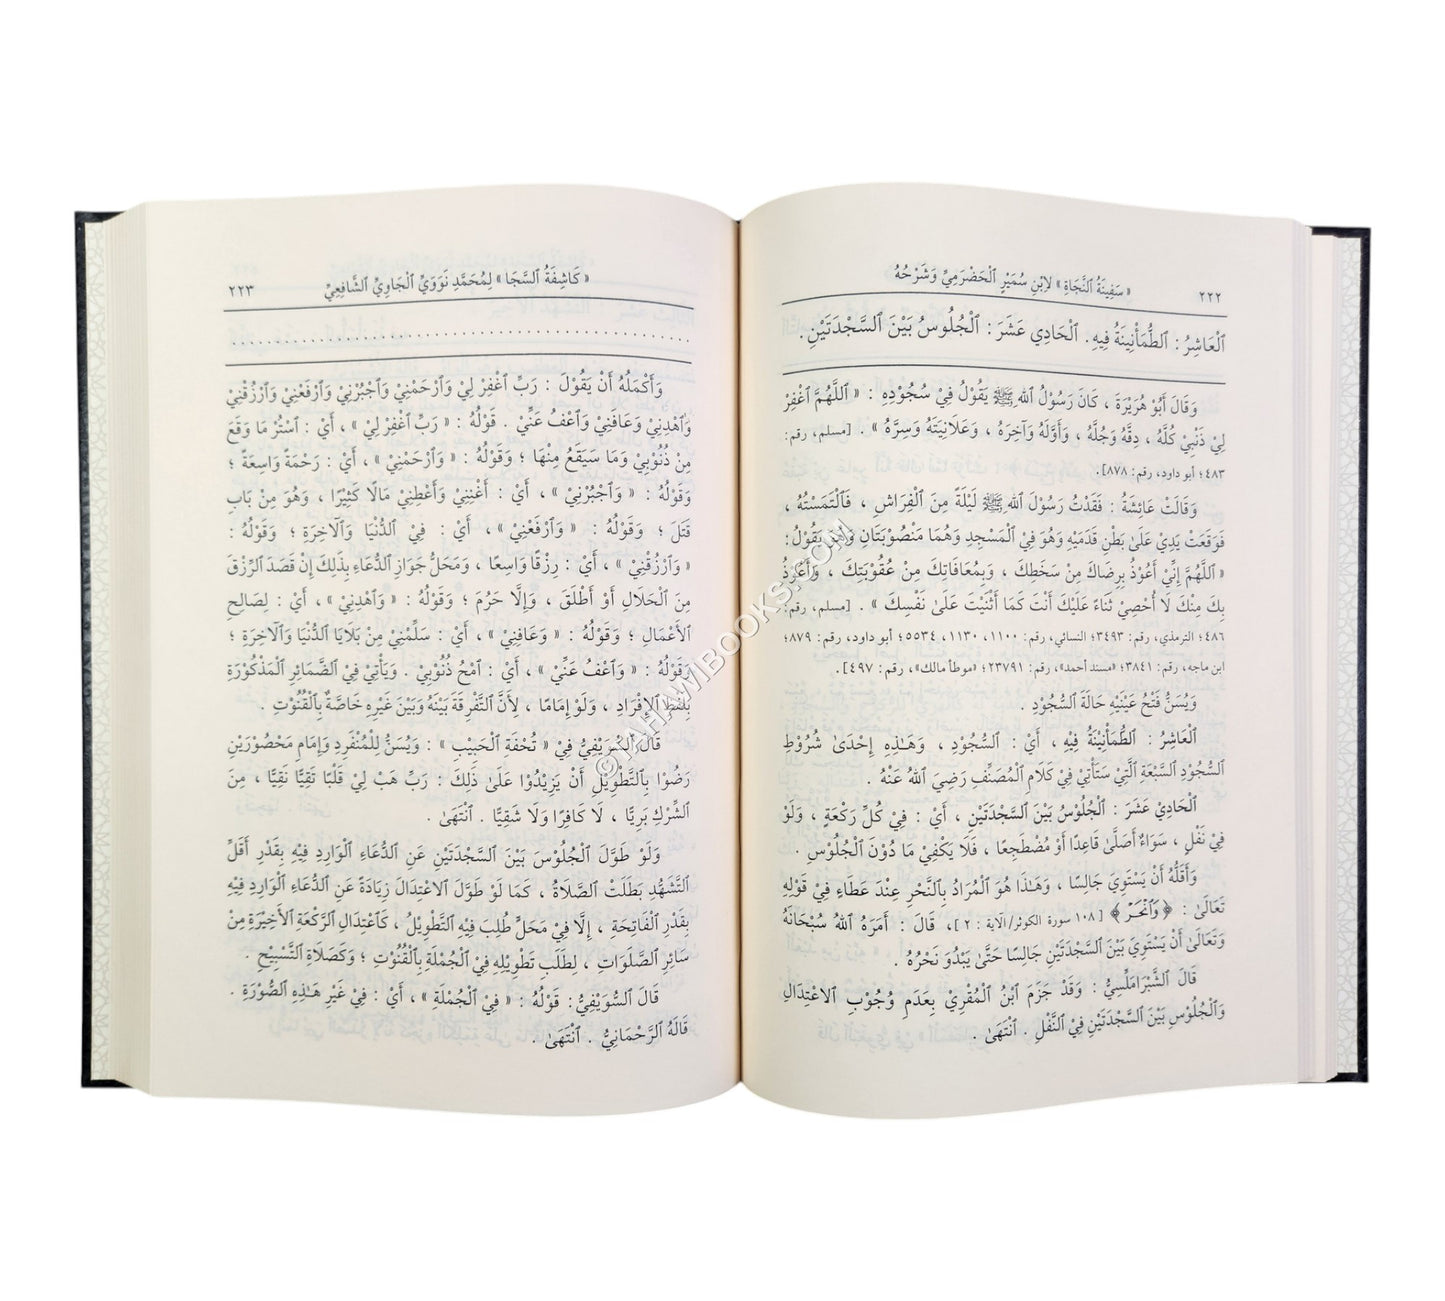 ٢٢٢
« سَفِينَةُ ٱلنَّجَاةِ » لِابْنِ سُمَيْرٍ ٱلْحَضْرَمِيِّ وَشَرْحُهُ
ٱلْعَاشِرُ : ٱلطُّمَأْنِينَةُ فِيهِ . ٱلْحَادِي عَشَرَ : ٱلْجُلُوسُ بَيْنَ ٱلسَّجْدَتَيْنِ .
وَقَالَ أَبُوْ هُرَيْرَةَ ، كَانَ رَسُوْلُ ٱللهِ ﷺ يَقُوْلُ فِيْ سُجُوْدِهِ : « ٱللَّهُمَّ ٱغْفِرْ
لِيْ ذَنْبِيْ كُلَّهُ ، دِقَّهُ وَجُلَّهُ ، وَأَوَّلَهُ وَآخِرَهُ ، وَعَلَانِيَتَهُ وَسِرَّهُ » . [مسلم، رقم:
٤٨٣؛ أبو داود، رقم: ٨٧٨].
وَقَالَتْ عَائِشَةُ : فَقَدْتُ رَسُوْلَ ٱللهِ ﷺ لَيْلَةً مِنَ ٱلْفِرَاشِ ، فَٱلْتَمَسْتُهُ ،
فَوَقَعَتْ يَدِيْ عَلَىٰ بَطْنِ قَدَمَيْهِ وَهُوَ فِيْ ٱلْمَسْجِدِ وَهُمَا مَنْصُوْبَتَانِ وَهُوَ يَقُوْلُ :
« ٱللَّهُمَّ إِنِّيْ أَعُوْذُ بِرِضَاكَ مِنْ سَخَطِكَ ، وَبِمُعَافَاتِكَ مِنْ عُقُوْبَتِكَ ، وَأَعُوْذُ
بِكَ مِنْكَ لَا أُحْصِيْ ثَنَاءً عَلَيْكَ أَنْتَ كَمَا أَثْنَيْتَ عَلَىٰ نَفْسِكَ » . [مسلم، رقم:
٤٨٦؛ الترمذي، رقم: ٣٤٩٣؛ النسائي، رقم: ١١٠٠، ١١٣٠، ٥٥٣٤؛ أبو داود، رقم: ٨٧٩؛
ابن ماجه، رقم: ٣٨٤١؛ «مسند أحمد»، رقم: ٢٣٧٩١؛ «موطأ مالك»، رقم: ٤٩٧].
وَيُسَنُّ فَتْحُ عَيْنَيْهِ حَالَةَ ٱلسُّجُوْدِ .
ٱلْعَاشِرُ : ٱلطُّمَأْنِيْنَةُ فِيْهِ ، أَيْ : ٱلسُّجُوْدِ ، وَهَـٰذِهِ إِحْدَىٰ شُرُوْطِ
ٱلسُّجُوْدِ ٱلسَّبْعَةِ ٱلَّتِيْ سَتَأْتِيْ فِيْ كَلَامِ ٱلْمُصَنِّفِ رَضِيَ ٱللهُ عَنْهُ .
ٱلْحَادِيْ عَشَرَ : ٱلْجُلُوْسُ بَيْنَ ٱلسَّجْدَتَيْنِ ، أَيْ : فِيْ كُلِّ رَكْعَةٍ ، وَلَوْ
فِيْ نَفْلٍ ، سَوَاءٌ أَصَلَّىٰ قَاعِدًا أَوْ مُضْطَجِعًا ، فَلَا يَكْفِيْ مَا دُوْنَ ٱلْجُلُوْسِ .
وَأَقَلُّهُ أَنْ يَسْتَوِيَ جَالِسًا ، وَهَـٰذَا هُوَ ٱلْمُرَادُ بِٱلنَّحْرِ عِنْدَ عَطَاءٍ فِيْ قَوْلِهِ
تَعَالَىٰ : ﴿ وَٱنْحَرْ ﴾ [ ١٠٨ سورة الكوثر/الآية : ٢ ]، قَالَ : أَمَرَهُ ٱللهُ سُبْحَانَهُ
وَتَعَالَىٰ أَنْ يَسْتَوِيَ بَيْنَ ٱلسَّجْدَتَيْنِ جَالِسًا حَتَّىٰ يَبْدُوَ نَحْرُهُ .
قَالَ ٱلشَّبْرَامَلِّسِيُّ : وَقَدْ جَزَمَ ٱبْنُ ٱلْمُقْرِيْ بِعَدَمِ وُجُوْبِ ٱلاِعْتِدَالِ
وَٱلْجُلُوْسِ بَيْنَ ٱلسَّجْدَتَيْنِ فِيْ ٱلنَّفْلِ . ٱنْتَهَىٰ .
« كَاشِفَةُ ٱلسَّجَا » لِمُحَمَّدِ نَوَوِيِّ ٱلْجَاوِيِّ ٱلشَّافِعِيِّ
٢٢٣
وَأَكْمَلُهُ أَنْ يَقُوْلَ : رَبِّ ٱغْفِرْ لِيْ وَٱرْحَمْنِيْ وَٱجْبُرْنِيْ وَٱرْفَعْنِيْ وَٱرْزُقْنِيْ
وَٱهْدِنِيْ وَعَافِنِيْ وَٱعْفُ عَنِّيْ . قَوْلُهُ : « رَبِّ ٱغْفِرْ لِيْ » ، أَيْ : ٱسْتُرْ مَا وَقَعَ
مِنْ ذُنُوْبِيْ وَمَا سَيَقَعُ مِنْهَا ؛ وَقَوْلُهُ : « وَٱرْحَمْنِيْ » ، أَيْ : رَحْمَةً وَاسِعَةً ؛
وَقَوْلُهُ : « وَٱجْبُرْنِيْ » ، أَيْ : أَغْنِنِيْ وَأَعْطِنِيْ مَالًا كَثِيْرًا ، وَهُوَ مِنْ بَابِ
قَتَلَ ؛ وَقَوْلُهُ : « وَٱرْفَعْنِيْ » ، أَيْ : فِيْ ٱلدُّنْيَا وَٱلْآخِرَةِ ؛ وَقَوْلُهُ :
« وَٱرْزُقْنِيْ » ، أَيْ : رِزْقًا وَاسِعًا ، وَمَحَلُّ جَوَازِ ٱلدُّعَاءِ بِذَلِكَ إِنْ قَصَدَ ٱلرِّزْقَ
مِنَ ٱلْحَلَالِ أَوْ أَطْلَقَ ، وَإِلَّا حَرُمَ ؛ وَقَوْلُهُ : « وَٱهْدِنِيْ » ، أَيْ : لِصَالِحِ
ٱلأَعْمَالِ ؛ وَقَوْلُهُ : « وَعَافِنِيْ » ، أَيْ : سَلِّمْنِيْ مِنْ بَلَايَا ٱلدُّنْيَا وَٱلْآخِرَةِ ؛
وَقَوْلُهُ : « وَٱعْفُ عَنِّيْ » ، أَيْ : ٱمْحُ ذُنُوْبِيْ . وَيَأْتِيْ فِيْ ٱلضَّمَائِرِ ٱلْمَذْكُوْرَةِ
بِلَفْظِ ٱلإِفْرَادِ ، وَلَوْ إِمَامًا ، لِأَنَّ ٱلتَّفْرِقَةَ بَيْنَهُ وَبَيْنَ غَيْرِهِ خَاصَّةٌ بِٱلْقُنُوْتِ .
قَالَ ٱلشَّرِيْفِيُّ فِيْ « تُحْفَةِ ٱلْحَبِيْبِ » : وَيُسَنُّ لِلْمُنْفَرِدِ وَإِمَامِ مَحْصُوْرَيْنِ
رَضُوْا بِٱلتَّطْوِيْلِ أَنْ يَزِيْدُوْا عَلَىٰ ذَلِكَ : رَبِّ هَبْ لِيْ قَلْبًا تَقِيًّا نَقِيًّا ، مِنَ
ٱلشِّرْكِ بَرِيًّا ، لَا كَافِرًا وَلَا شَقِيًّا . ٱنْتَهَىٰ .
وَلَوْ طَوَّلَ ٱلْجُلُوْسَ بَيْنَ ٱلسَّجْدَتَيْنِ عَنِ ٱلدُّعَاءِ ٱلْوَارِدِ فِيْهِ بِقَدْرِ أَقَلِّ
ٱلتَّشَهُّدِ بَطَلَتْ ٱلصَّلَاةُ ، كَمَا لَوْ طَوَّلَ ٱلاِعْتِدَالَ زِيَادَةً عَنِ ٱلدُّعَاءِ ٱلْوَارِدِ فِيْهِ
بِقَدْرِ ٱلْفَاتِحَةِ ، إِلَّا فِيْ مَحَلٍّ طُلِبَ فِيْهِ ٱلتَّطْوِيْلُ ، كَٱعْتِدَالِ ٱلرَّكْعَةِ ٱلأَخِيْرَةِ مِنْ
سَائِرِ ٱلصَّلَوَاتِ ، لِطَلَبِ تَطْوِيْلِهِ فِيْ ٱلْجُمْلَةِ بِٱلْقُنُوْتِ ؛ وَكَصَلَاةِ ٱلتَّسْبِيْحِ .
قَالَ ٱلسُّوَيْفِيُّ : قَوْلُهُ : « فِيْ ٱلْجُمْلَةِ » ، أَيْ : فِيْ غَيْرِ هَـٰذِهِ ٱلصُّوْرَةِ .
قَالَهُ ٱلرَّحْمَانِيُّ . ٱنْتَهَىٰ .